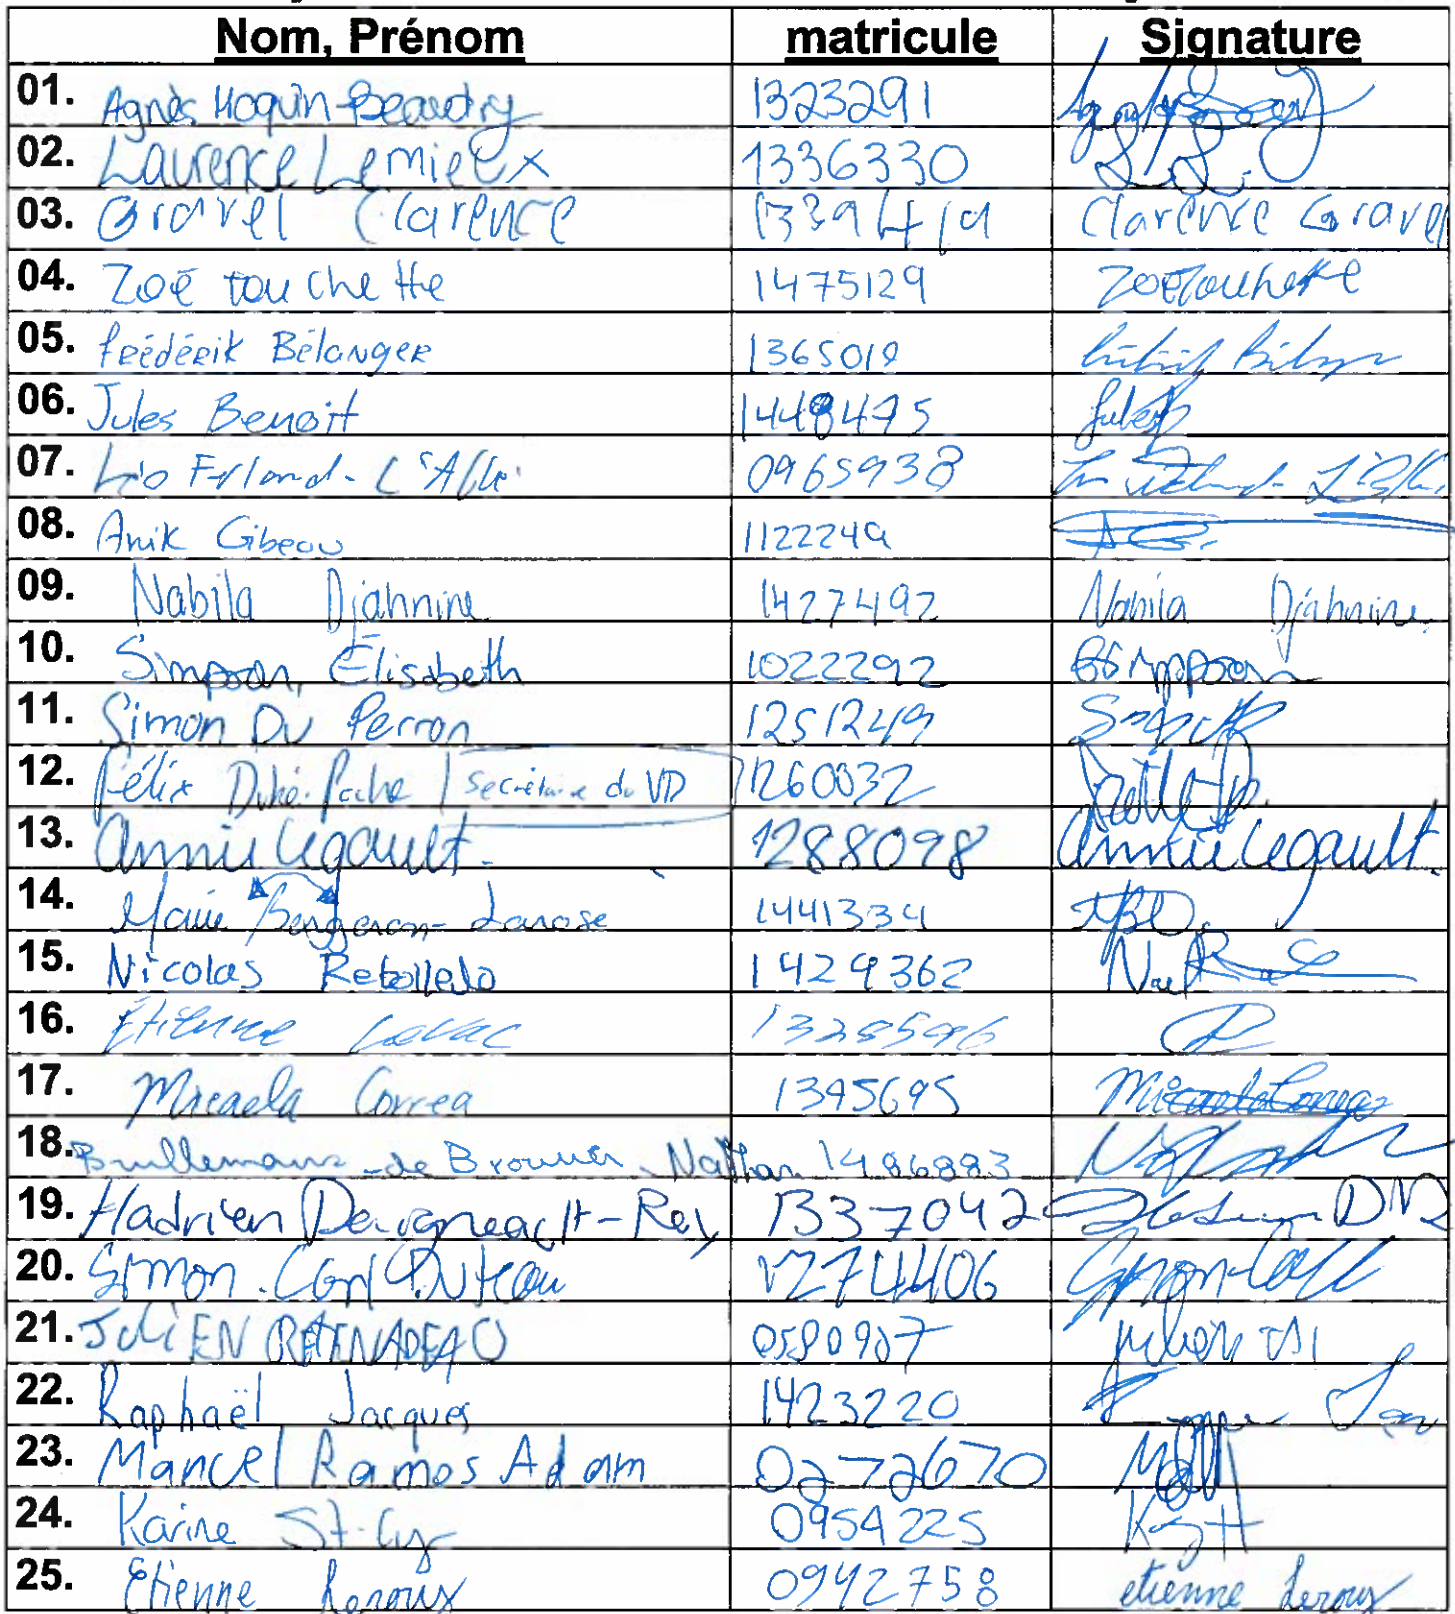 Nom, Prénom matricule Signature
01. Agnès Hoquin-Beaudry 1323291
02. Laurence Lemieux 1336330 L.L.
03. Gravel Clarence 1339419 Clarence Gravel
04. Zoé touchette 1475129 Zoé Touchette
05. Frédérik Bélanger 1365019
06. Jules Benoit 1448475
07. Léo Ferland-L'Allié 0965938
08. Anik Gibeau 1122249
09. Nabila Djahnine 1427492 Nabila Djahnine
10. Simpson, Élisabeth 1022292
11. Simon Du Perron 1251249
12. Félix Dubé- | secrétaire du VD 1260032
13. Annie Legault. 1288098 Annie Legault.
14. Marie Bergeron-Larose 1441334
15. Nicolas Rebolledo 1429362
16. Étienne 1328596
17. Micaela Correa 1395695 Micaela Correa
18. Brullemans-de Brouwer, Nathan 1486883
19. Hadrien Daigneault-Roy 1337042
20. Simon-Carl 1274406
21. JuliEN 0580907
22. Raphaël Jacques 1423220
23. Mancel Ramos Adam 0272670
24. Karine St-Cyr 0954225
25. Etienne Leroux 0942758 etienne Leroux